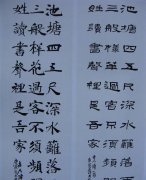 池塘四五尺深水籬落兩
三般樣花過客不須頻問
姓讀書聲裏是吾家
池塘四五尺深水籬落兩
三般樣花過客不須頻問
姓讀書聲裏是吾家